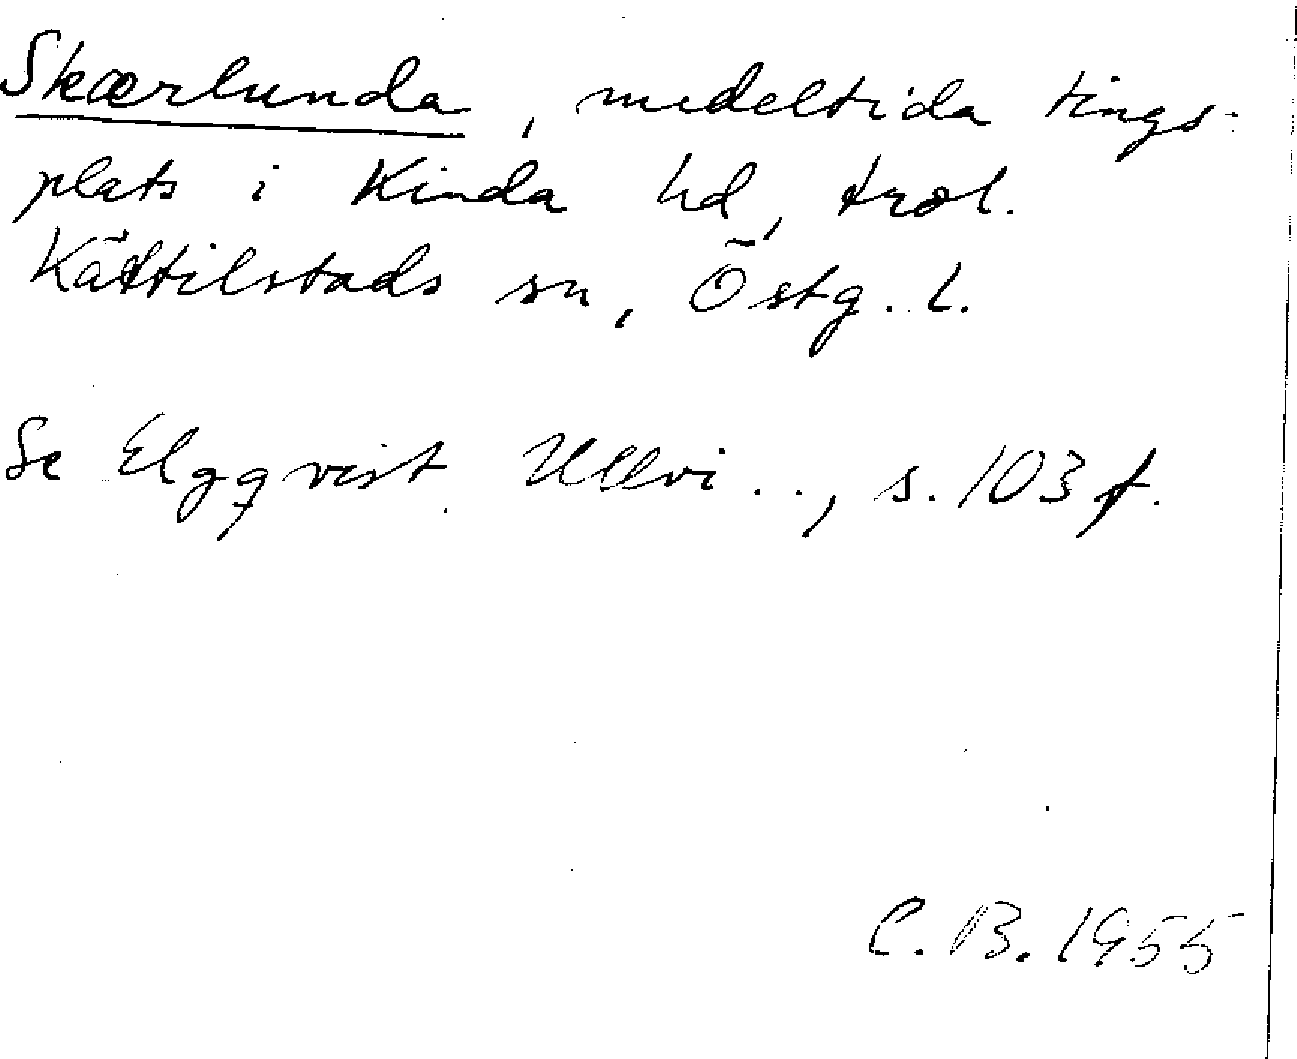 Skærlunda, medeltida tings-
plats i Kinda hd, trol.
Kättilstads sn, Östg. l.
Se Elgqvist Ullvi .., s. 103 f.
C. B. 1955